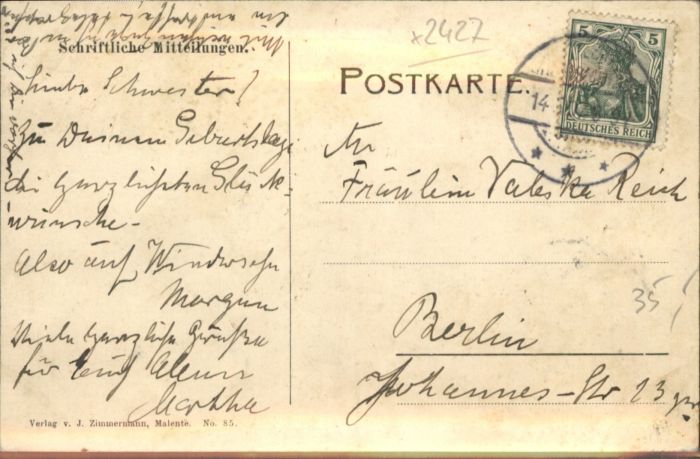 Schriftliche Mitteilungen.
Liebe Schwester!
Zu Deinem Geburtstage
die herzlichsten Glück-
wünsche.
Also auf Wiedersehn
Morgen
Viele herzliche Grüße
für Euch Alle
Martha
Verlag v. J. Zimmermann, Malente. No. 85.
x2427
POSTKARTE.
5 5
DEUTSCHES REICH
14
An
Fräulein Valeska Reich
Berlin
Johannes-Str 13
35